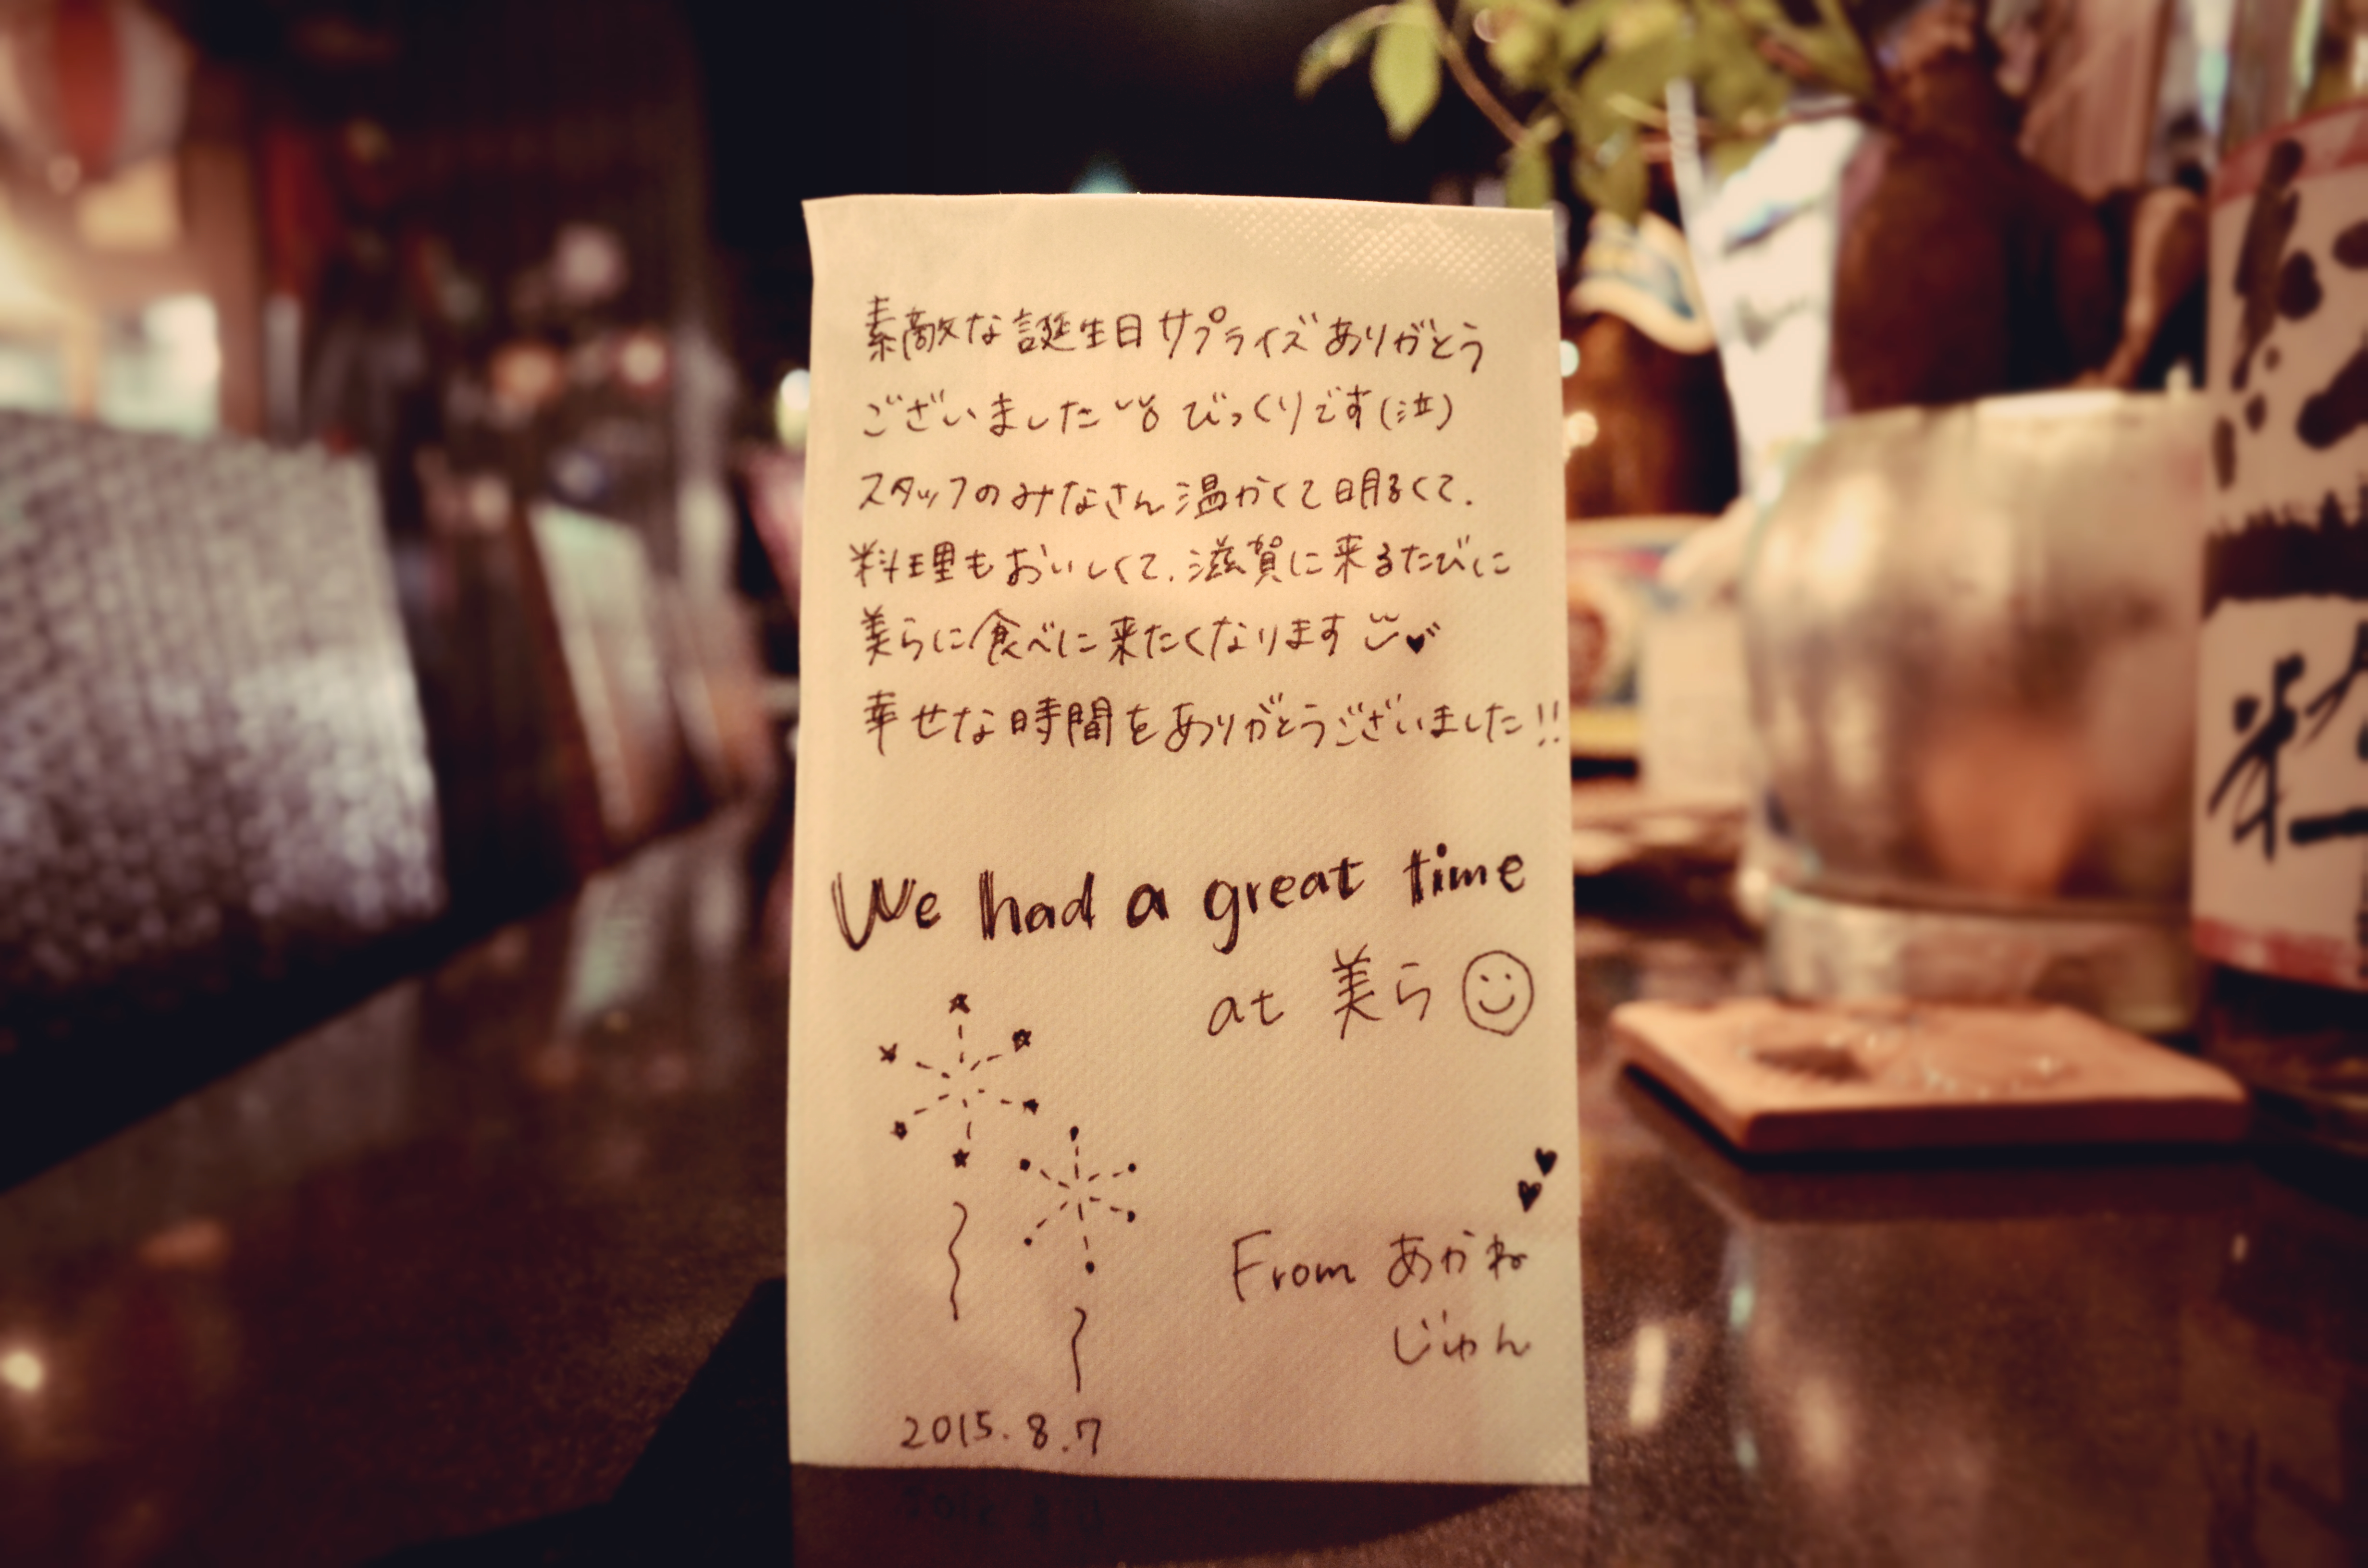 素敵な誕生日サプライズありがとう
ございました びっくりです(泣)
スタッフのみなさん温かくて明るくて、
料理もおいしくて、滋賀に来るたびに
美らに食べに来たくなります♥
幸せな時間をありがとうございました!!
We had a great time
at 美ら
From あかね
じゅん
2015.8.7